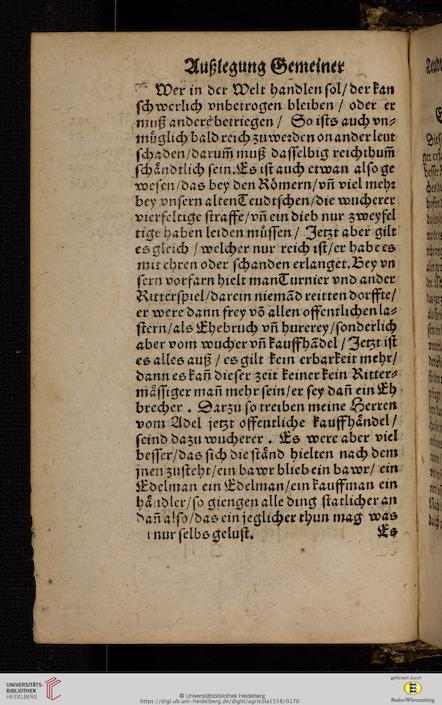 Außlegung Gemeiner
Wer in der Welt handlen sol/der kan
schwerlich vnbetrogen bleiben / oder er
muß andere betriegen / So ists auch vn-
müglich bald reich zuwerden on ander leut
schaden/darum̃ muß dasselbig reichthum̃
schändtlich sein.Es ist auch etwan also ge
wesen/das bey den Römern/vñ viel mehr
bey vnsern alten Teudtschen/die wucherer
vierfeltige straffe/vñ ein dieb nur zweyfel
tige haben leiden müssen / Jetzt aber gilt
es gleich / welcher nur reich ist/er habe es
mit ehren oder schanden erlanget.Bey vn
sern vorfarn hielt man Turnier vnd ander
Ritterspiel/darein niemãd reitten dorffte/
er were dann frey võ allen offentlichen la-
stern/als Ehebruch vñ hurerey/sonderlich
aber vom wucher vñ kauffhãdel / Jetzt ist
es alles auß / es gilt kein erbarkeit mehr/
dann es kañ dieser zeit keiner kein Ritter-
mässiger mañ mehr sein/er sey dañ ein Eh
brecher . Darzu so treiben meine Herren
vom Adel jetzt offentliche kauffhändel/
seind dazu wucherer . Es were aber viel
besser/das sich die ständ hielten nach dem
jnen zusteht/ein bawr blieb ein bawr/ ein
Edelman ein Edelman/ein kauffman ein
händler/so giengen alle ding statlicher an
dañ also/das ein jeglicher thun mag was
nur selbs gelust. Es
UNIVERSITÄTS-
BIBLIOTHEK
HEIDELBERG
© Universitätsbibliothek Heidelberg
https://digi.ub.uni-heidelberg.de/diglit/agricola1558/0170
gefördert durch
Baden-Württemberg